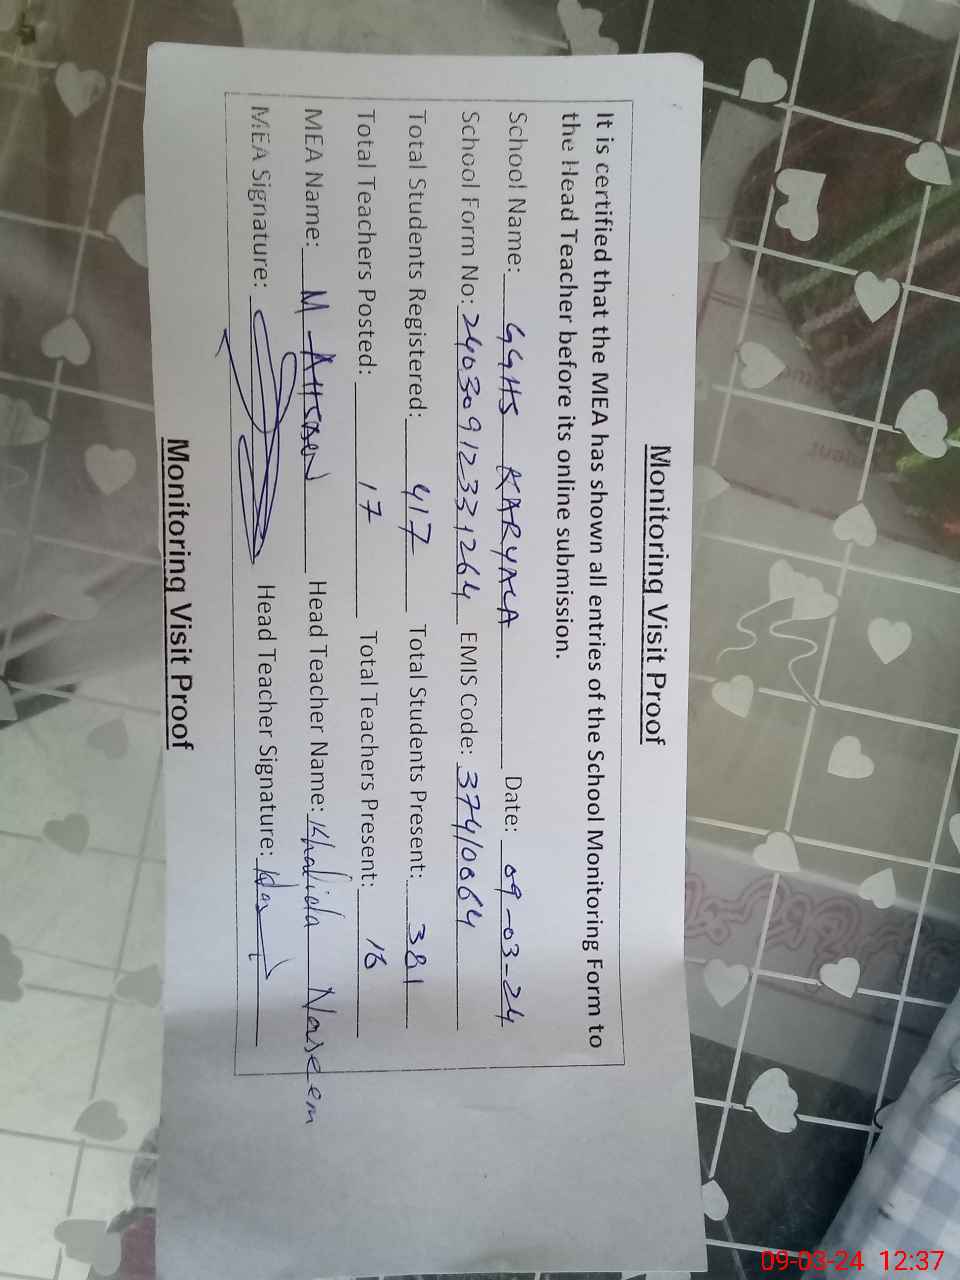 Monitoring Visit Proof
It is certified that the MEA has shown all entries of the School Monitoring Form to
the Head Teacher before its online submission.
School Name: GGHS KARYALA Date: 09-03-24
School Form No: 24030912331264 EMIS Code: 37410064
Total Students Registered: 417 Total Students Present: 381
Total Teachers Posted: 17 Total Teachers Present: 16
MEA Name: M AHSAN Head Teacher Name: Khalida Naseem
MEA Signature: Head Teacher Signature:
Monitoring Visit Proof
09-03-24 12:37